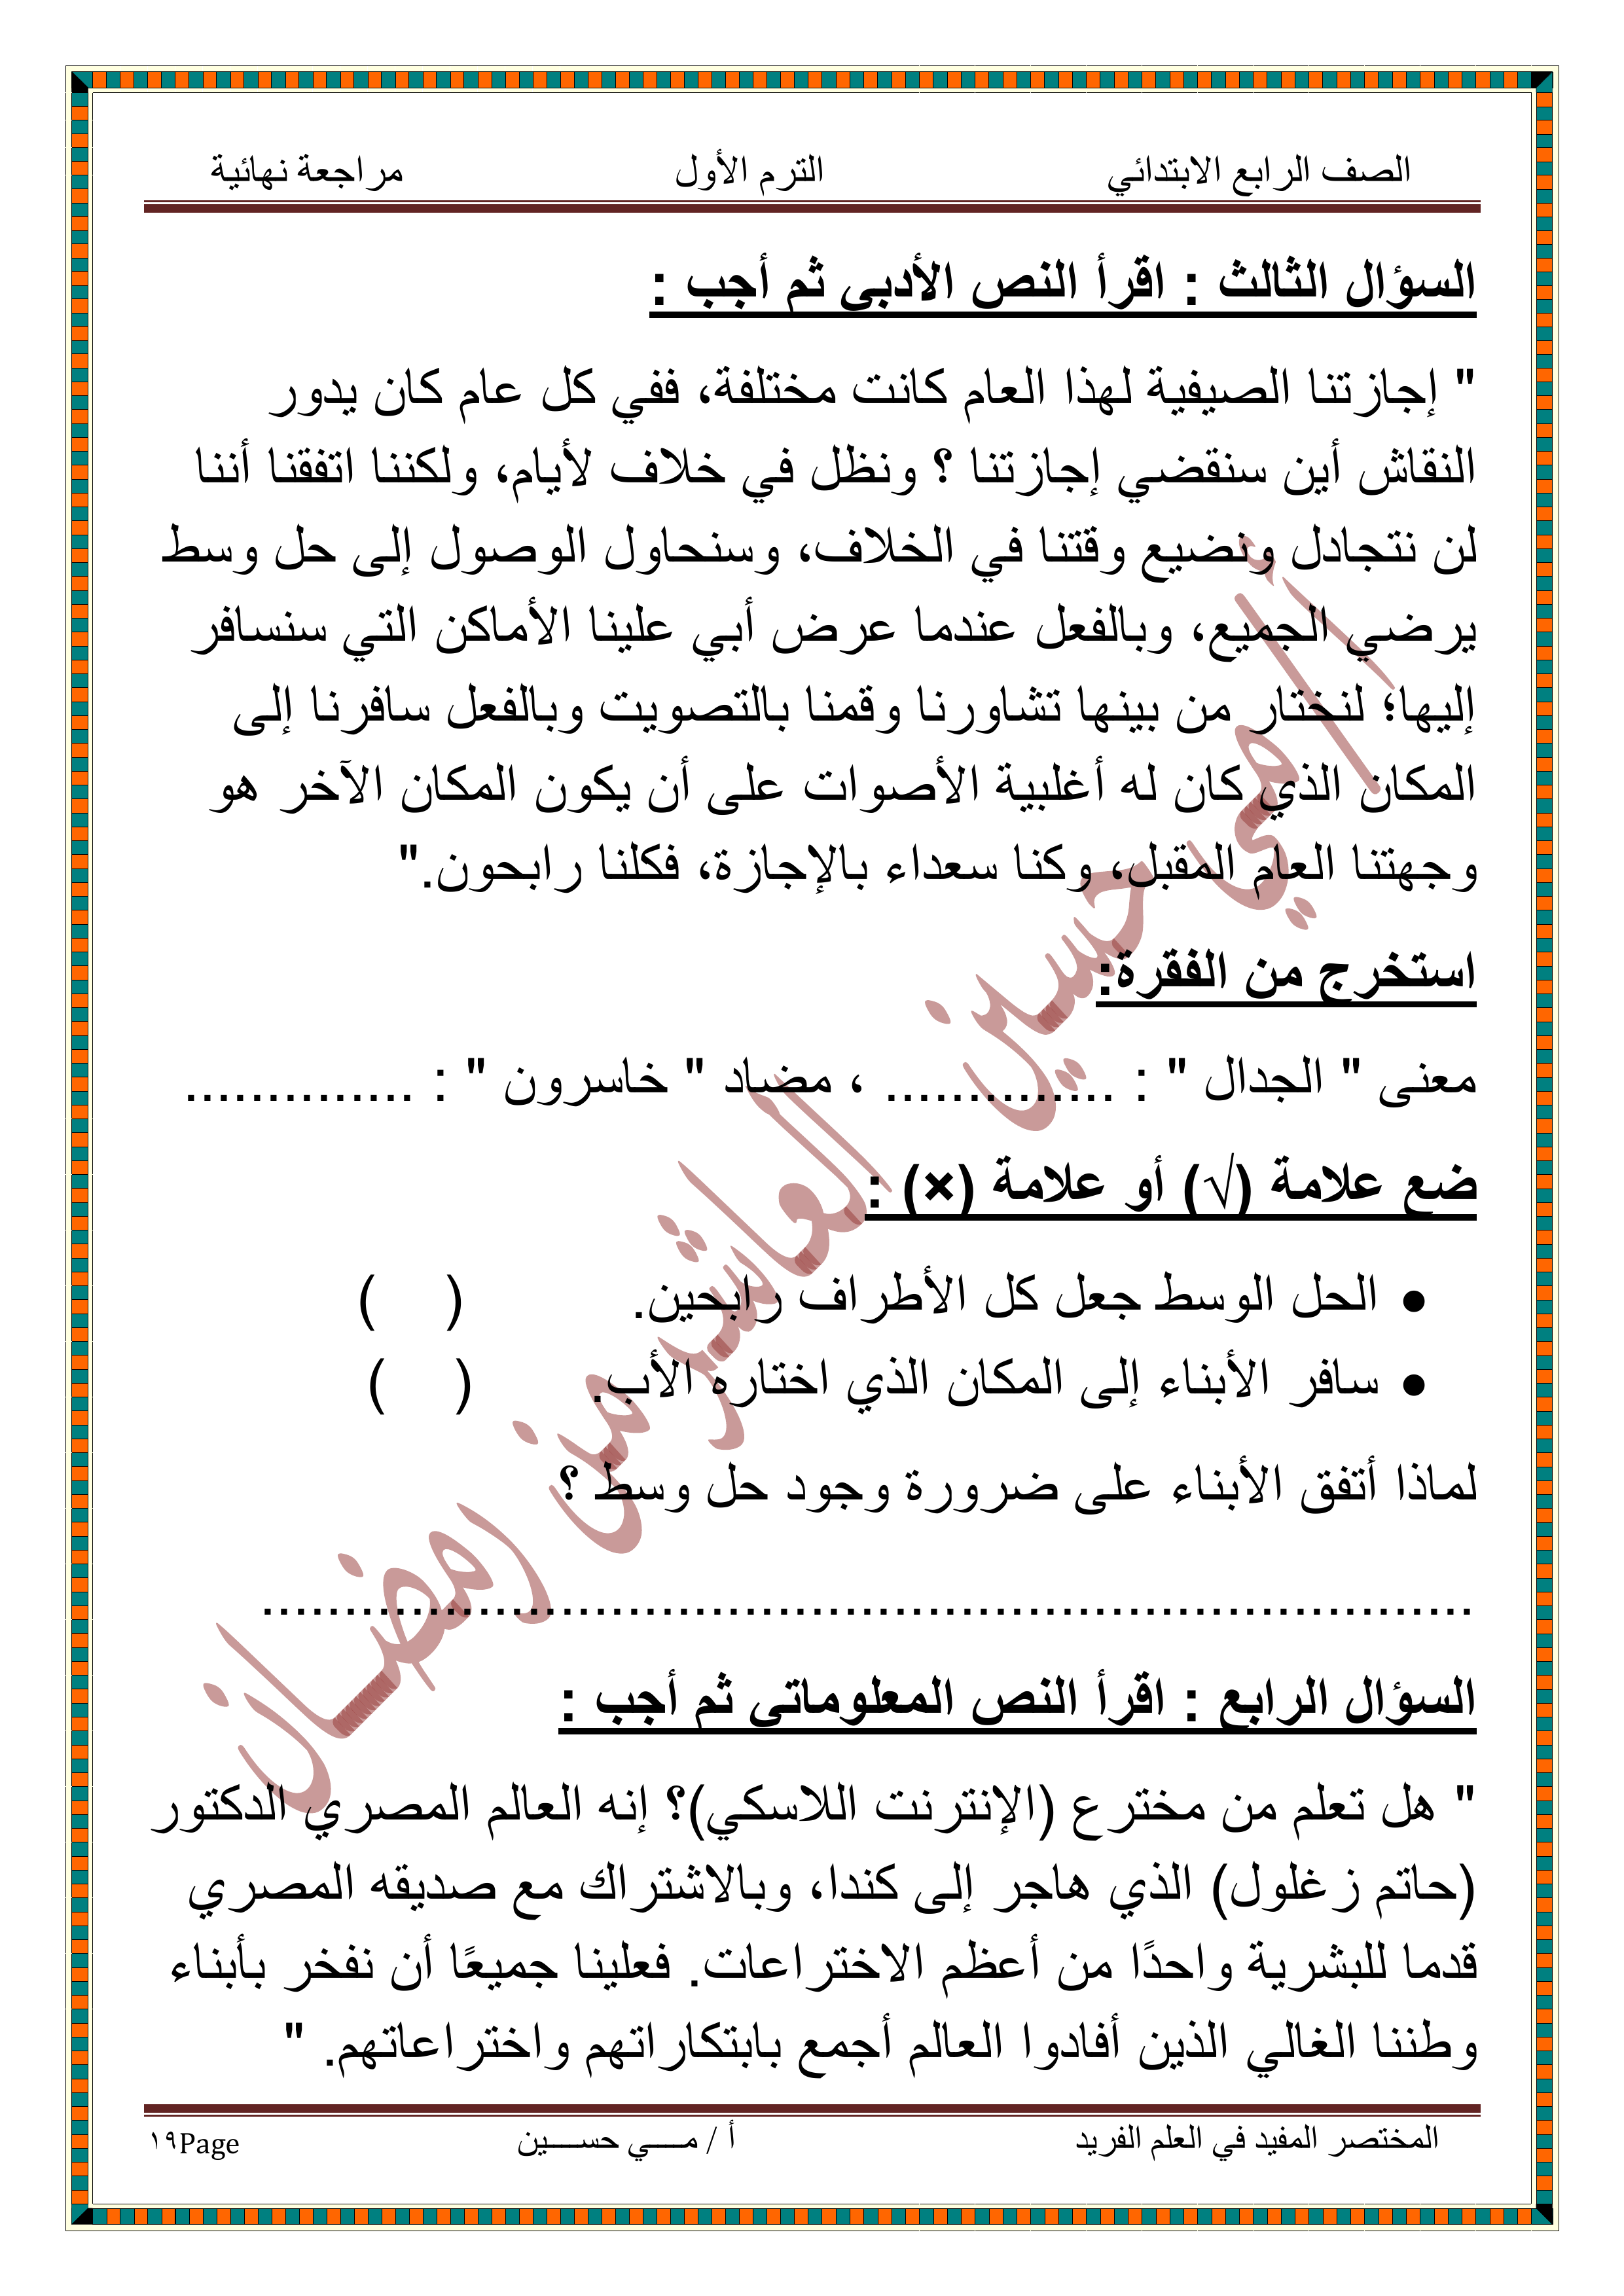 الصف الرابع الابتدائي الترم الأول مراجعة نهائية
السؤال الثالث : اقرأ النص الأدبي ثم أجب :
" إجازتنا الصيفية لهذا العام كانت مختلفة، ففي كل عام كان يدور
النقاش أين سنقضي إجازتنا ؟ ونظل في خلاف لأيام، ولكننا اتفقنا أننا
لن نتجادل ونضيع وقتنا في الخلاف، وسنحاول الوصول إلى حل وسط
يرضي الجميع، وبالفعل عندما عرض أبي علينا الأماكن التي سنسافر
إليها؛ لنختار من بينها تشاورنا وقمنا بالتصويت وبالفعل سافرنا إلى
المكان الذي كان له أغلبية الأصوات على أن يكون المكان الآخر هو
وجهتنا العام المقبل، وكنا سعداء بالإجازة، فكلنا رابحون."
استخرج من الفقرة:
معنى " الجدال " : .............. ، مضاد " خاسرون " : ..............
ضع علامة (√) أو علامة (×) :
• الحل الوسط جعل كل الأطراف رابحين. ( )
• سافر الأبناء إلى المكان الذي اختاره الأب. ( )
لماذا أتفق الأبناء على ضرورة وجود حل وسط ؟
.........................................................................
السؤال الرابع : اقرأ النص المعلوماتي ثم أجب :
" هل تعلم من مخترع (الإنترنت اللاسكي)؟ إنه العالم المصري الدكتور
(حاتم زغلول) الذي هاجر إلى كندا، وبالاشتراك مع صديقه المصري
قدما للبشرية واحدًا من أعظم الاختراعات. فعلينا جميعًا أن نفخر بأبناء
وطننا الغالي الذين أفادوا العالم أجمع بابتكاراتهم واختراعاتهم. "
المختصر المفيد في العلم الفريد أ / مـــــي حســـــين Page١٩
أ/مي حسين العاشر من رمضان